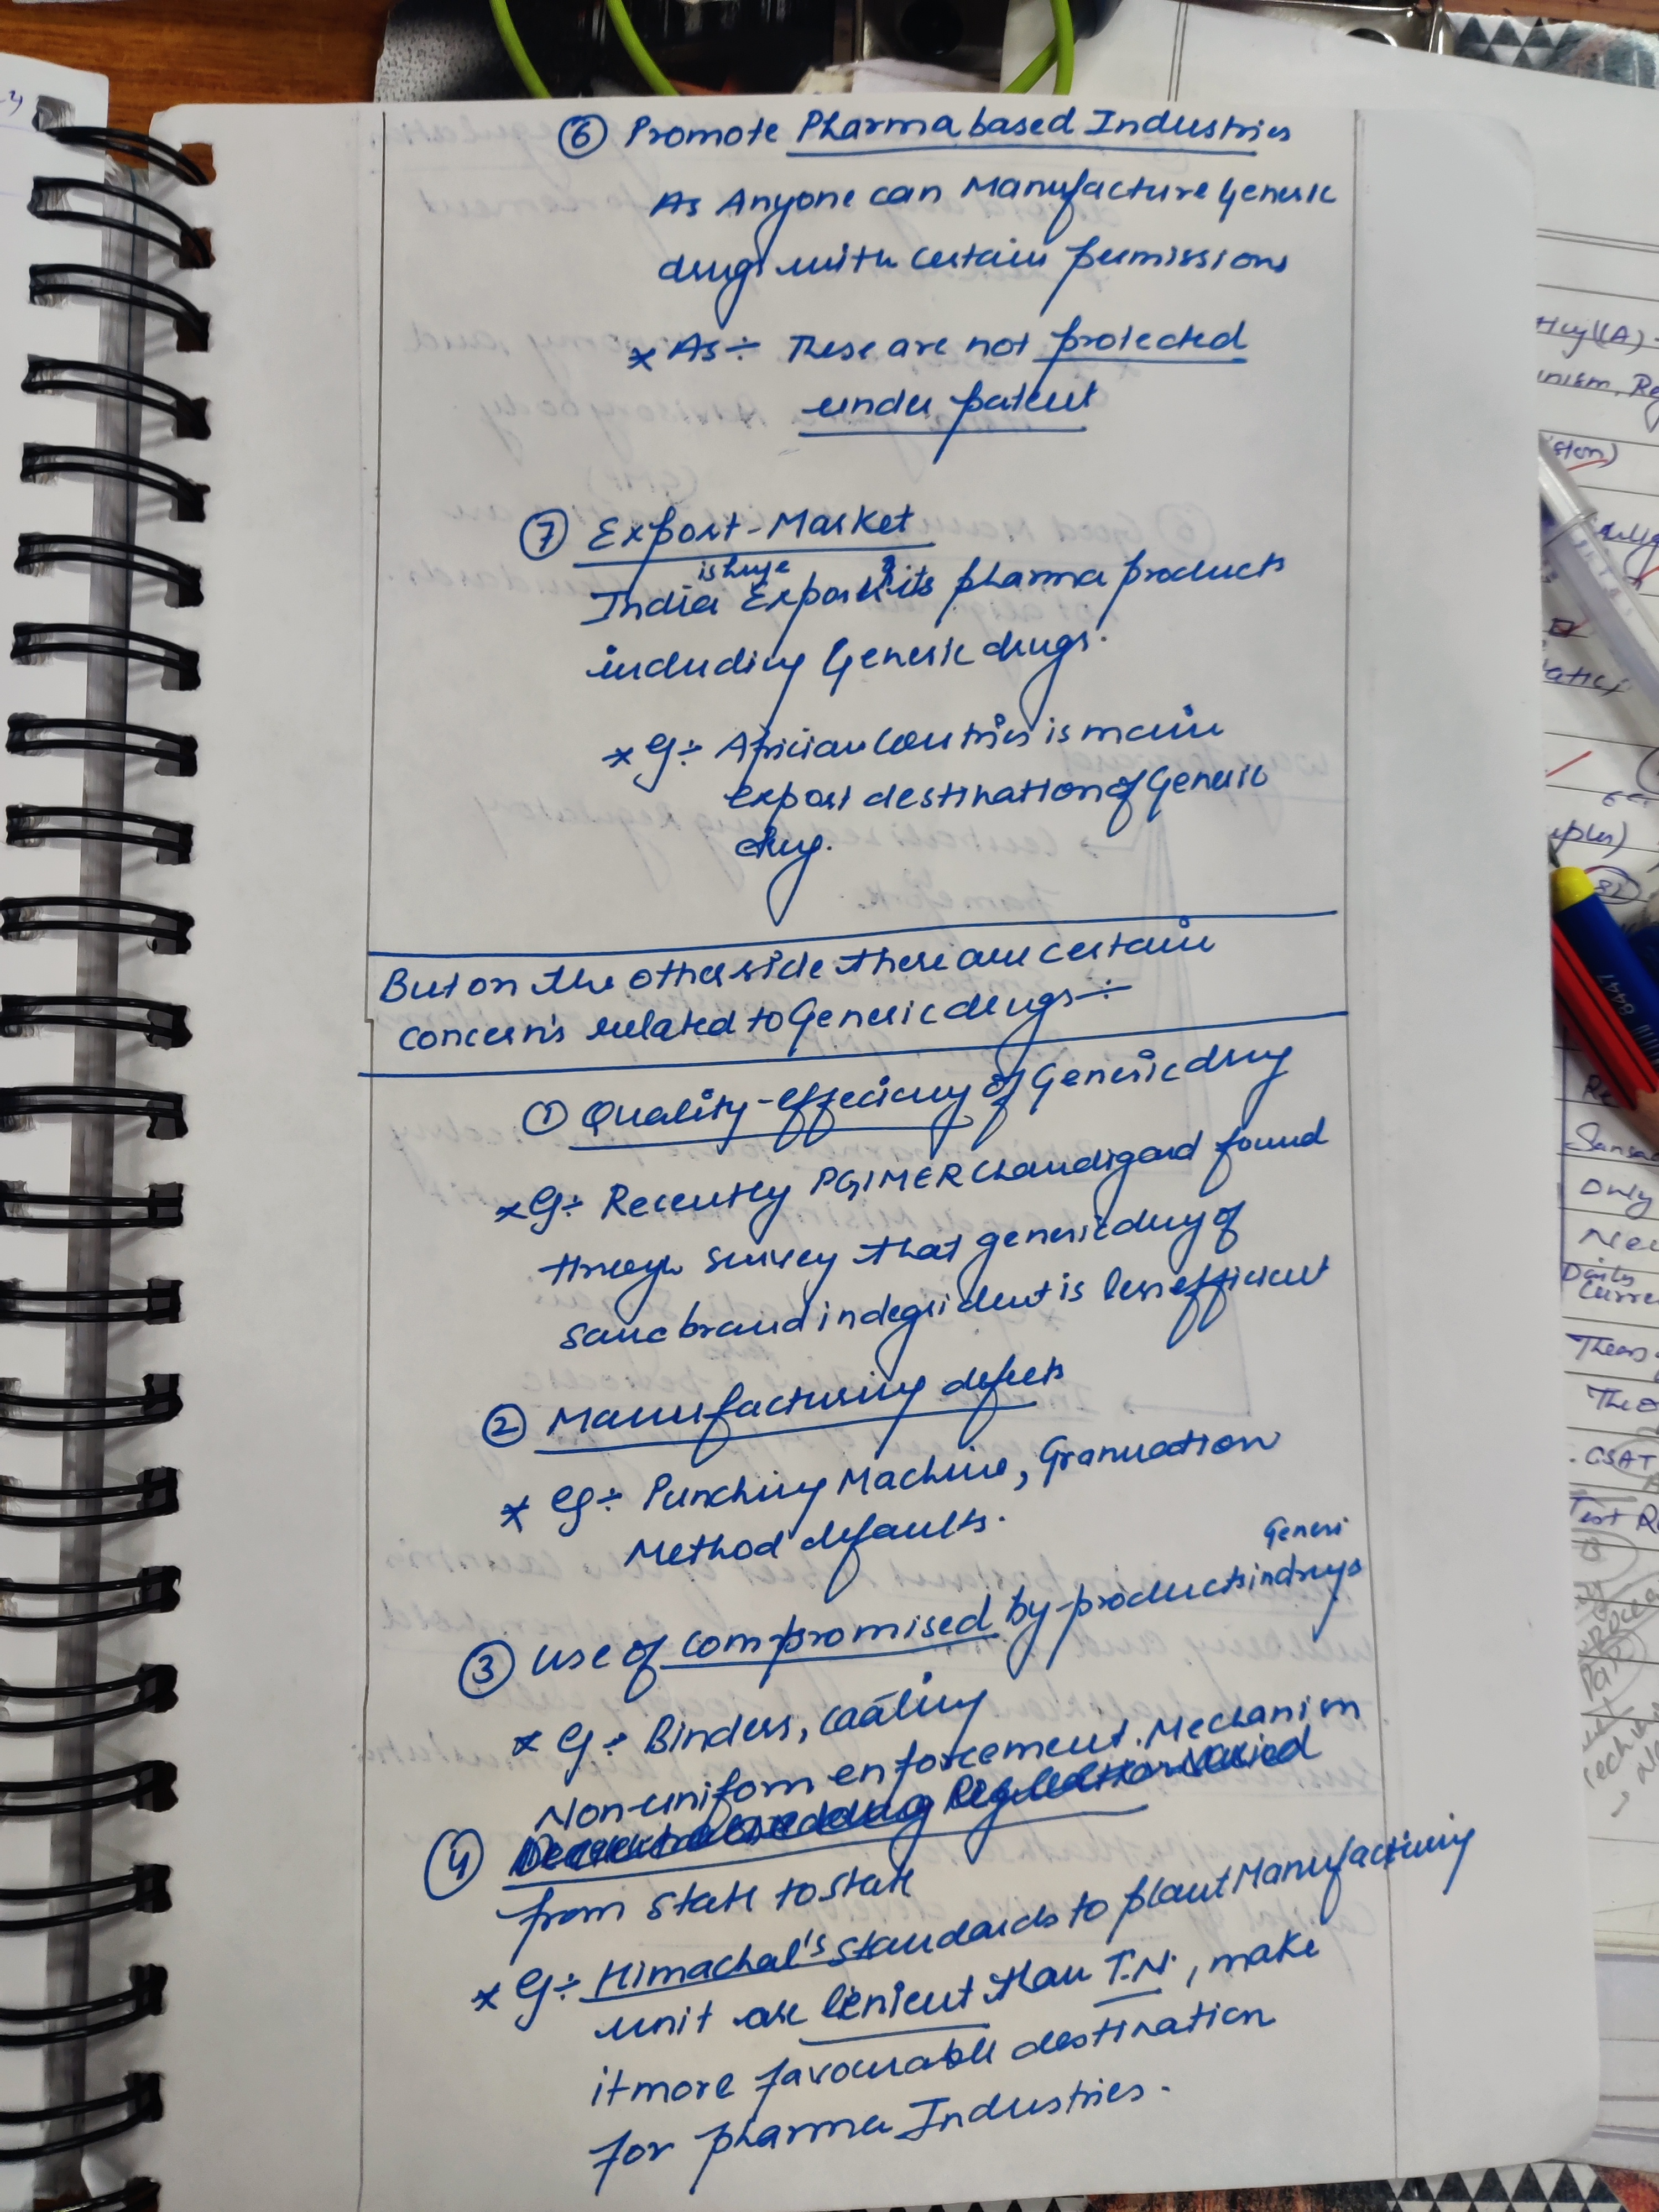 ⑥ Promote Pharma based Industries
As Anyone can Manufacture Generic
drugs with certain permissions
* As ÷ These are not protected
under patent
⑦ Export-Market
is huge
India Export its pharma products
including Generic drugs.
* Eg ÷ African Countries is main
export destination of Generic
drug.
But on the otherside there are certain
concern's related to Generic drugs ÷
① Quality-efficiency of Generic drug
* Eg ÷ Recently PGIMER Chandigard found
through survey that generic drug of
same brand indegrident is less efficient
② Manufacturing defects
* Eg ÷ Punching Machine, Granuation
Method defaults.
Generi
③ Use of compromised by-products in drugs
* Eg ÷ Binders, Coating
Non-uniform enforcement. Mechanism
④
from State to State
* Eg ÷ Himachal's Standards to plant Manufacturing
unit are lenient than T.N., make
it more favourable destination
for pharma Industries.
8447
Only
Daily
CSAT